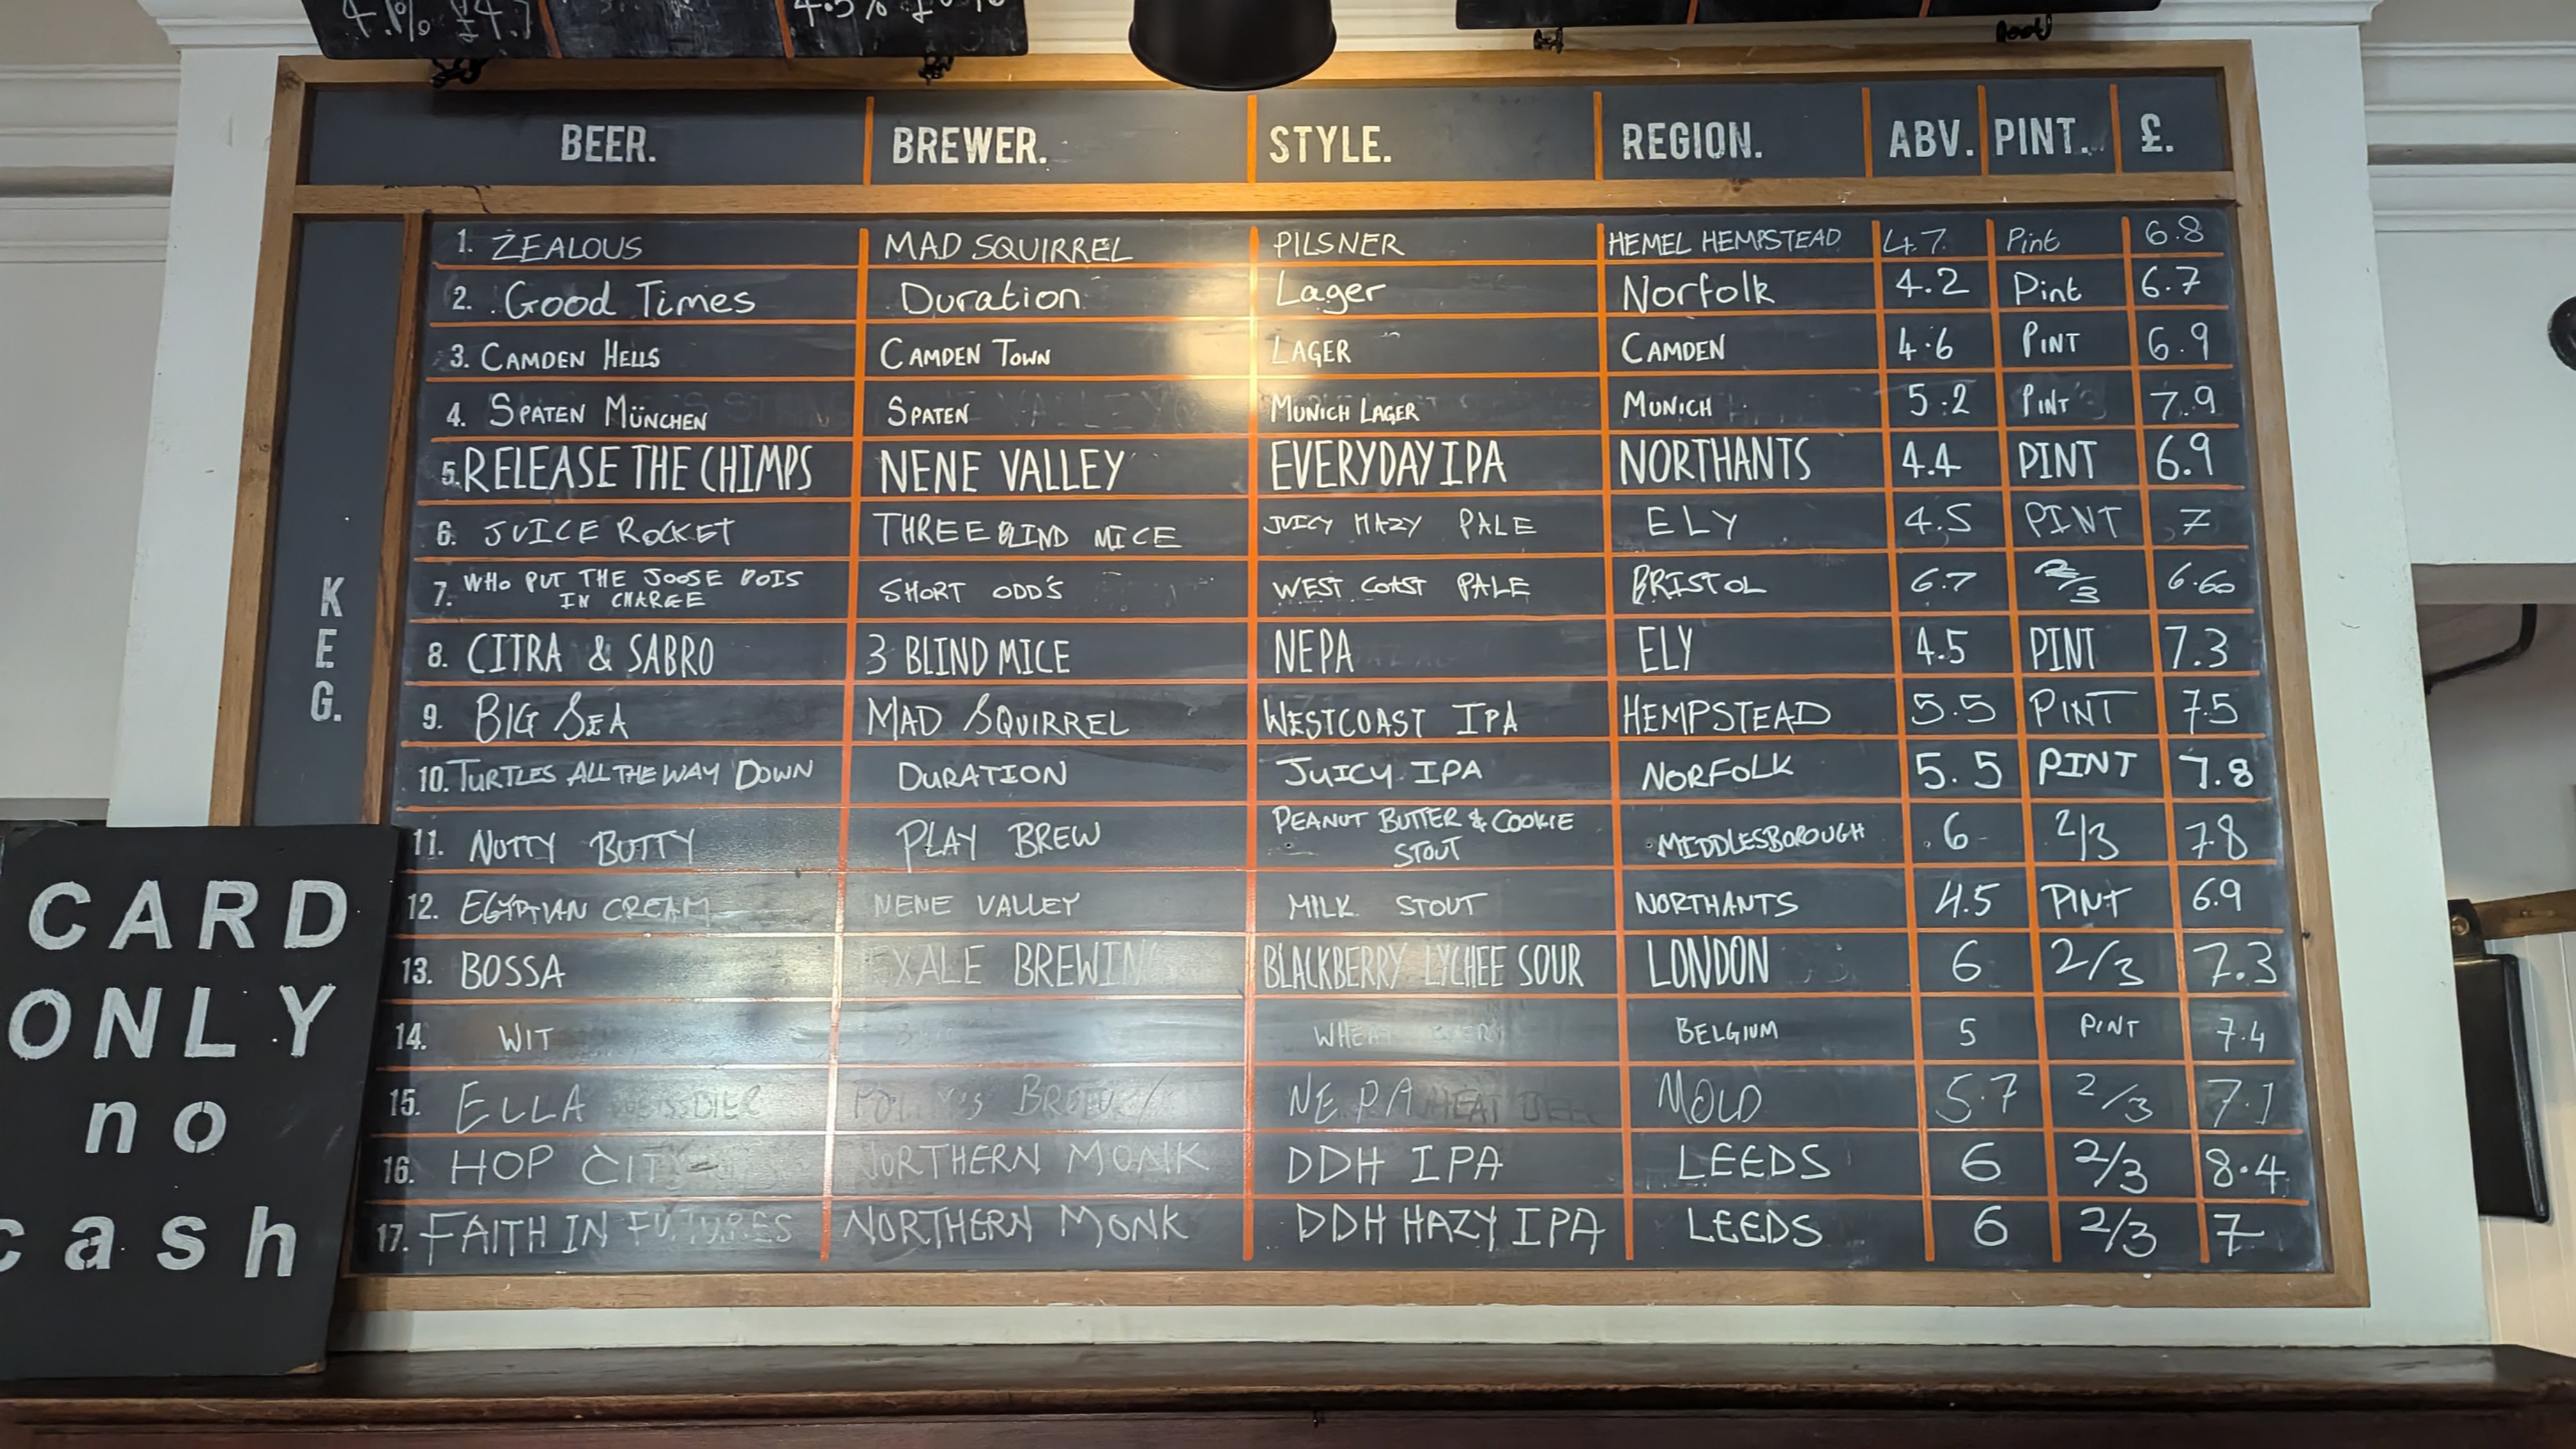 4.1% £4.7
4.5%
BEER. BREWER. STYLE. REGION. ABV. PINT. £.
KEG.
1. ZEALOUS MAD SQUIRREL PILSNER HEMEL HEMPSTEAD 4.7 Pint 6.8
2. Good Times Duration Lager Norfolk 4.2 Pint 6.7
3. CAMDEN HELLS CAMDEN TOWN LAGER CAMDEN 4.6 PINT 6.9
4. SPATEN MÜNCHEN SPATEN MUNICH LAGER MUNICH 5.2 PINT 7.9
5. RELEASE THE CHIMPS NENE VALLEY EVERYDAY IPA NORTHANTS 4.4 PINT 6.9
6. JUICE ROCKET THREE BLIND MICE JUICY HAZY PALE ELY 4.5 PINT 7
7. WHO PUT THE JOOSE BOIS
IN CHARGE SHORT ODD'S WEST COAST PALE BRISTOL 6.7 2/3 6.60
8. CITRA & SABRO 3 BLIND MICE NEPA ELY 4.5 PINT 7.3
9. BIG SEA MAD SQUIRREL WESTCOAST IPA HEMPSTEAD 5.5 PINT 7.5
10. TURTLES ALL THE WAY DOWN DURATION JUICY IPA NORFOLK 5.5 PINT 7.8
11. NUTTY BUTTY PLAY BREW PEANUT BUTTER & COOKIE
STOUT MIDDLESBOROUGH 6 2/3 7.8
12. EGYPTIAN CREAM NENE VALLEY MILK STOUT NORTHANTS 4.5 PINT 6.9
13. BOSSA EXALE BREWING BLACKBERRY LYCHEE SOUR LONDON 6 2/3 7.3
14. WIT WHEAT BEER BELGIUM 5 PINT 7.4
15. ELLA NEPA MOLD 5.7 2/3 7.1
16. HOP CITY NORTHERN MONK DDH IPA LEEDS 6 2/3 8.4
17. FAITH IN FUTURES NORTHERN MONK DDH HAZY IPA LEEDS 6 2/3 7
CARD
ONLY
no
cash